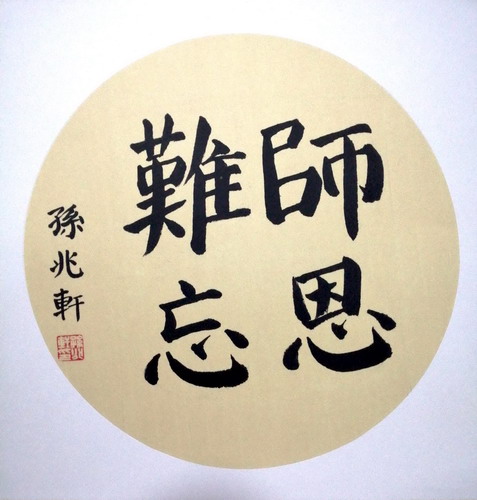 師恩
難忘
孫兆軒